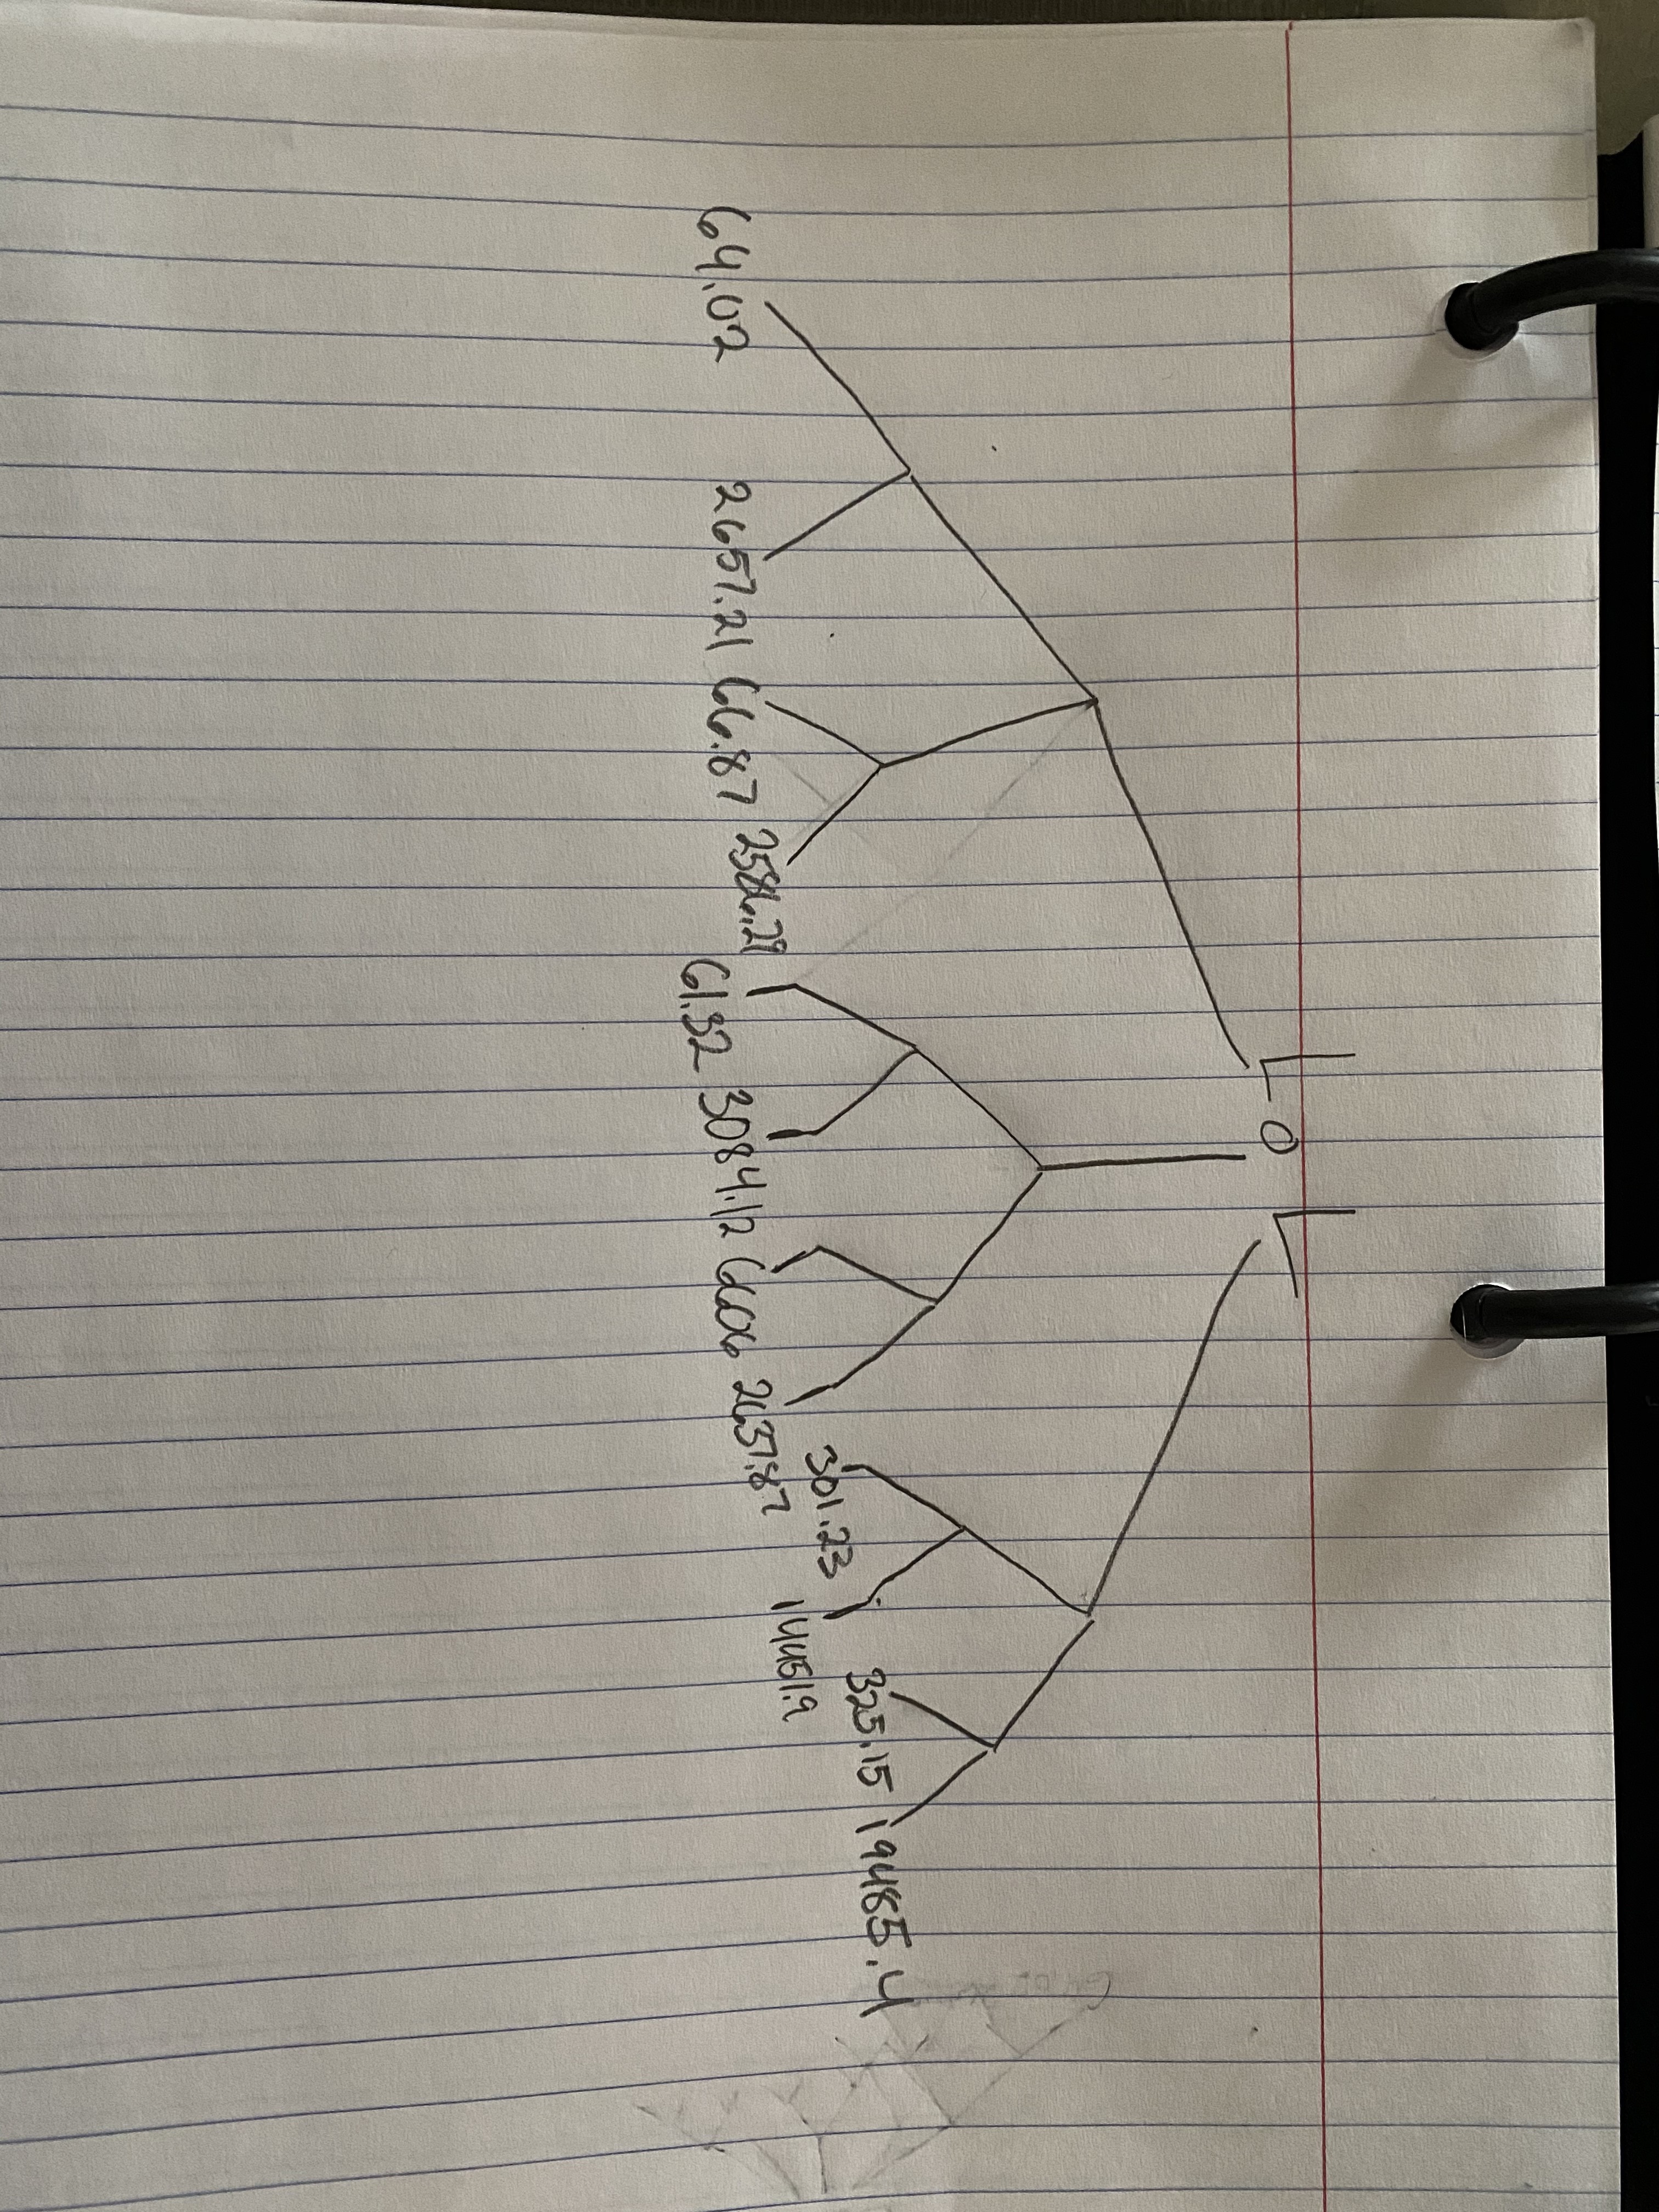 L O L
64.02 2657.21 66.87 2586.29 61.32 3084.12 2637.87 301.23 14451.9 325.15 19485.4